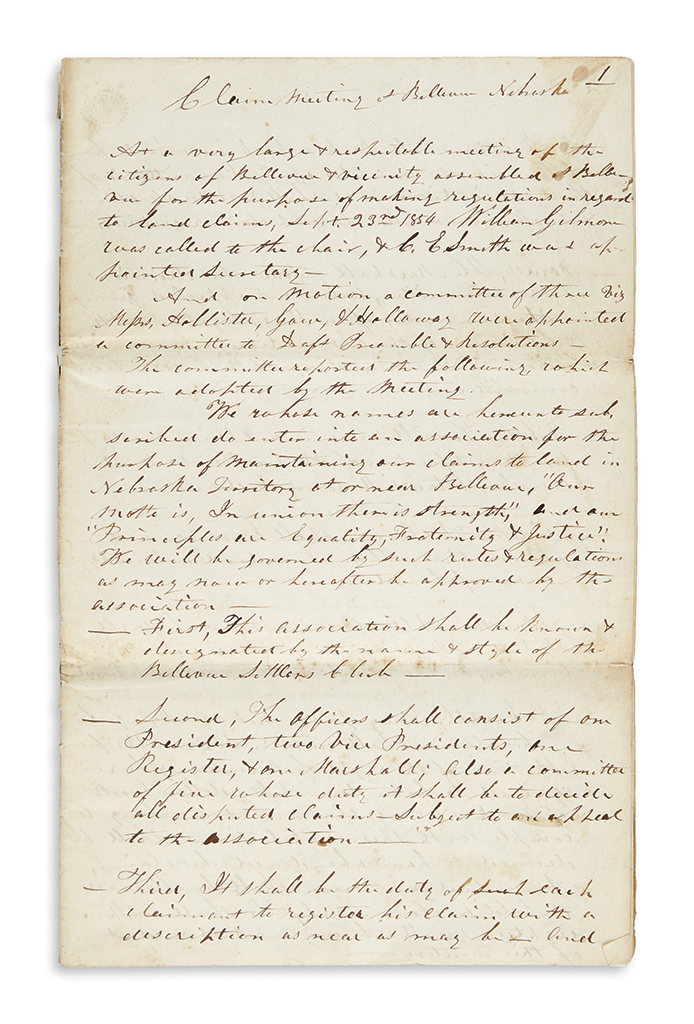 1
Claim Meeting at Bellevue Nebraska
At a very large & respectable meeting of the
citizens of Bellevue & vicinity assembled at Belle-
vue for the purpose of making regulations in regard
to land claims, Sept. 23rd 1854 William Gilmore
was called to the chair, & C. E Smith was ap-
pointed Secretary —
And on motion a committee of three viz
Messrs, Hollister, Gow, & Holloway were appointed
a committee to Draft Preamble & Resolutions —
The committee reported the following, which
were adopted by the Meeting.
We whose names are hereunto sub,
scribed do enter into an association for the
purpose of maintaining our claims to land in
Nebraska Territory at or near Bellevue, "Our
Motto is, In union there is strength," and our
"Principles are Equality, Fraternity & Justice".
We will be governed by such rules & regulations
as may now or hereafter be approved by the
association —
— First, This association shall be known &
designated by the name & style of the
Bellevue Settlers Club —
— Second, The officers shall consist of one
President, two Vice Presidents, one
Register, & one Marshall; also a committee
of five whose duty it shall be to decide
all disputed claims — Subject to an appeal
to the association —
— Third, It shall be the duty of such each
claimant to register his claim with a
description as near as may be — and